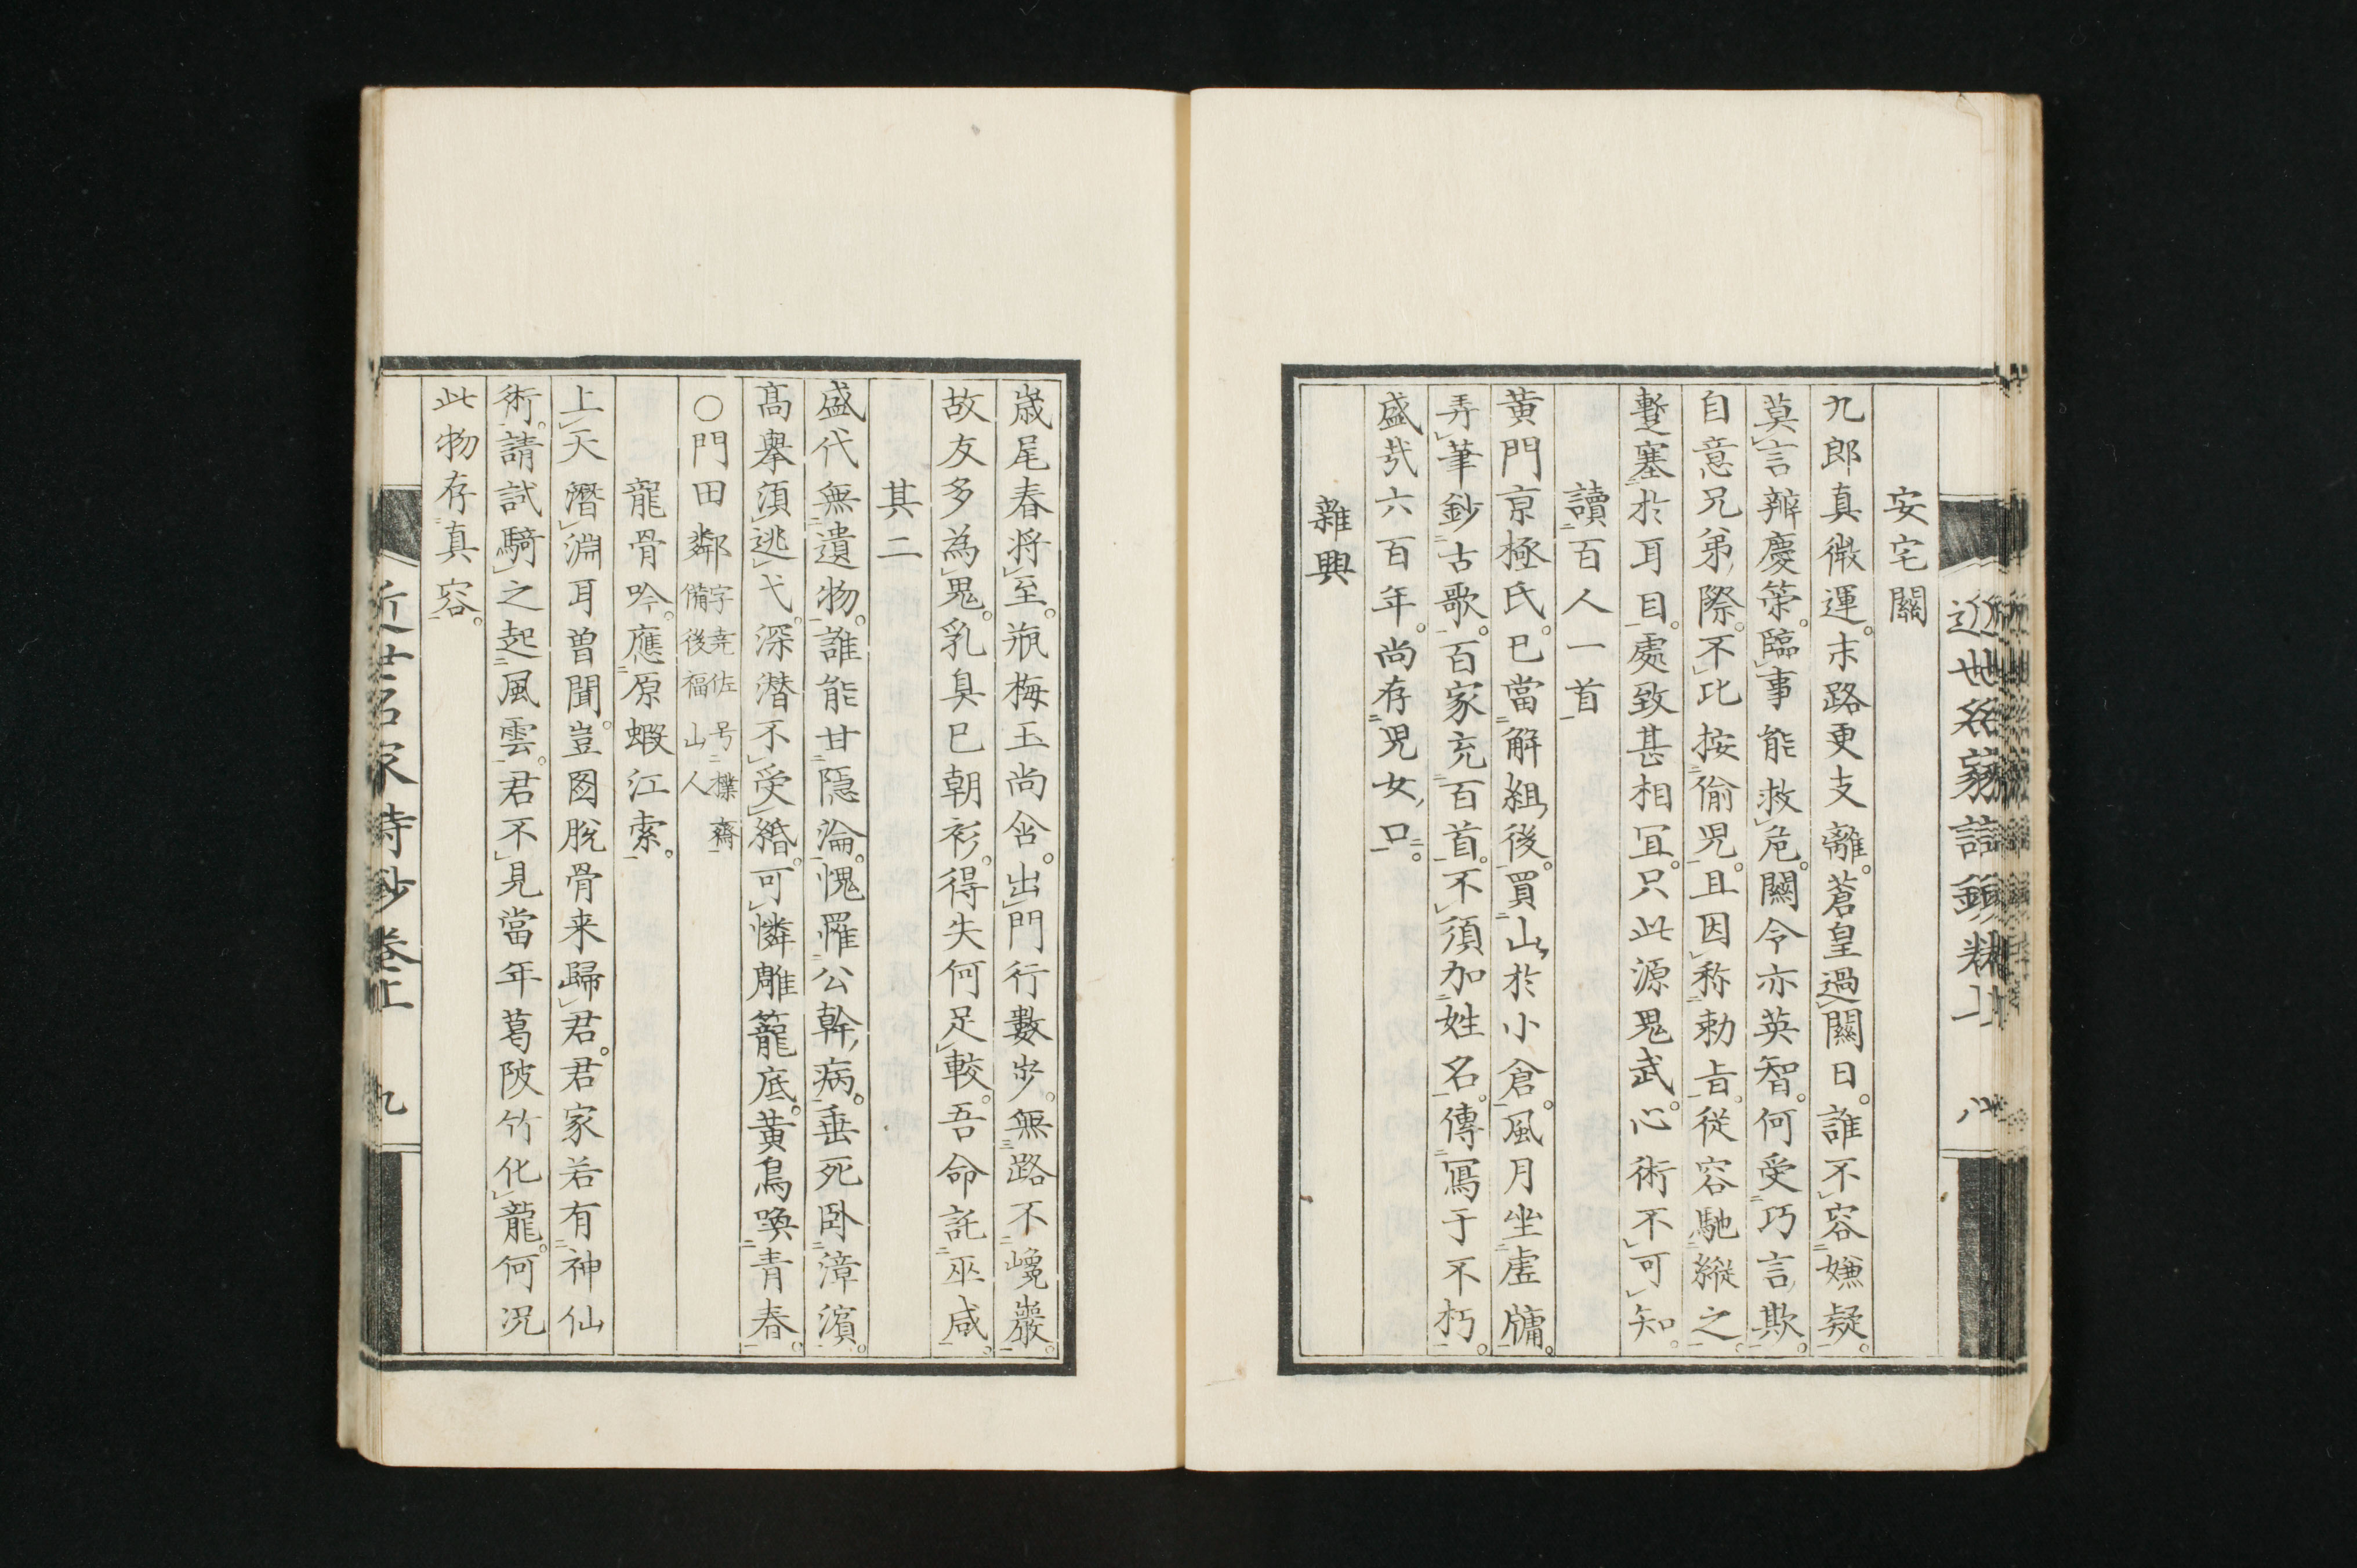 安宅關
九郎真微運。末路更支離。蒼皇過關日。誰不容嫌疑。
莫言辨慶策。臨事能救危。關令亦英智。何受巧言欺。
自意兄弟際。不比按偷児。且因称勅旨。従容馳縱之。
蹔塞於耳目。處致甚相冝。只此源鬼武。心術不可知。
讀百人一首
黄門京極氏。已當解組後。買山於小倉。風月坐虚牖。
弄筆鈔古歌。百家充百首。不須加姓名。傳寫于不朽。
盛㢤六百年。尚存児女口。
雜興
歳尾春将至。瓶梅玉尚含。出門行數歩。無路不巉巖。
故友多為鬼。乳臭已朝衫。得失何足較。吾命託巫咸。
其二
盛代無遺物。誰能甘隠淪。愧罹公幹病。垂死卧漳濱。
髙擧須逃弋。深潜不受緡。可憐雕籠底。黄鳥喚青春。
○門田鄰 字尭佐 号樸齋 備後福山人
龍骨吟。應原蝦江索。
上天潛淵耳曽聞。豈図脱骨来歸君。君家若有神仙
術。請試騎之起風雲。君不見當年葛陂竹化龍。何况
此物存真容。
近世名家詩鈔卷上 九